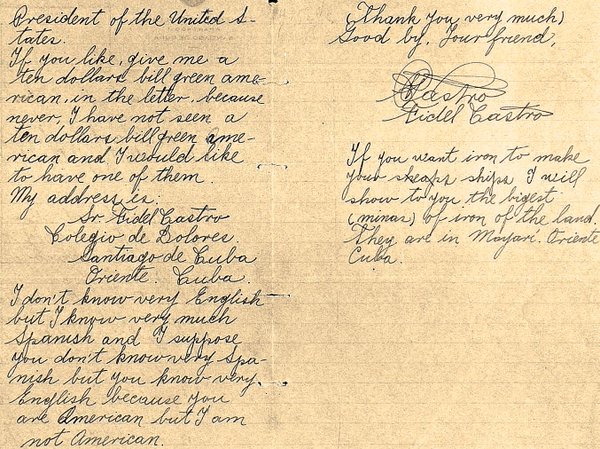 President of the United S-
tates.
If you like, give me a
ten dollars bill green ame-
rican, in the letter, because
never, I have not seen a
ten dollars bill green ame-
rican and I would like
to have one of them.
My address is.
Sr. Fidel Castro
Colegio de Dolores.
Santiago de Cuba
Oriente. Cuba.
I don't know very English
but I know very much
Spanish and I suppose
you don't know very Spa-
nish but you know very
English because you
are American but I am
not American.
(Thank you very much)
Good by. Your friend,
Castro
Fidel Castro
If you want iron to make
your sheaps ships I will
show to you the bigest
(minas) of iron of the land.
They are in Mayarí. Oriente
Cuba.